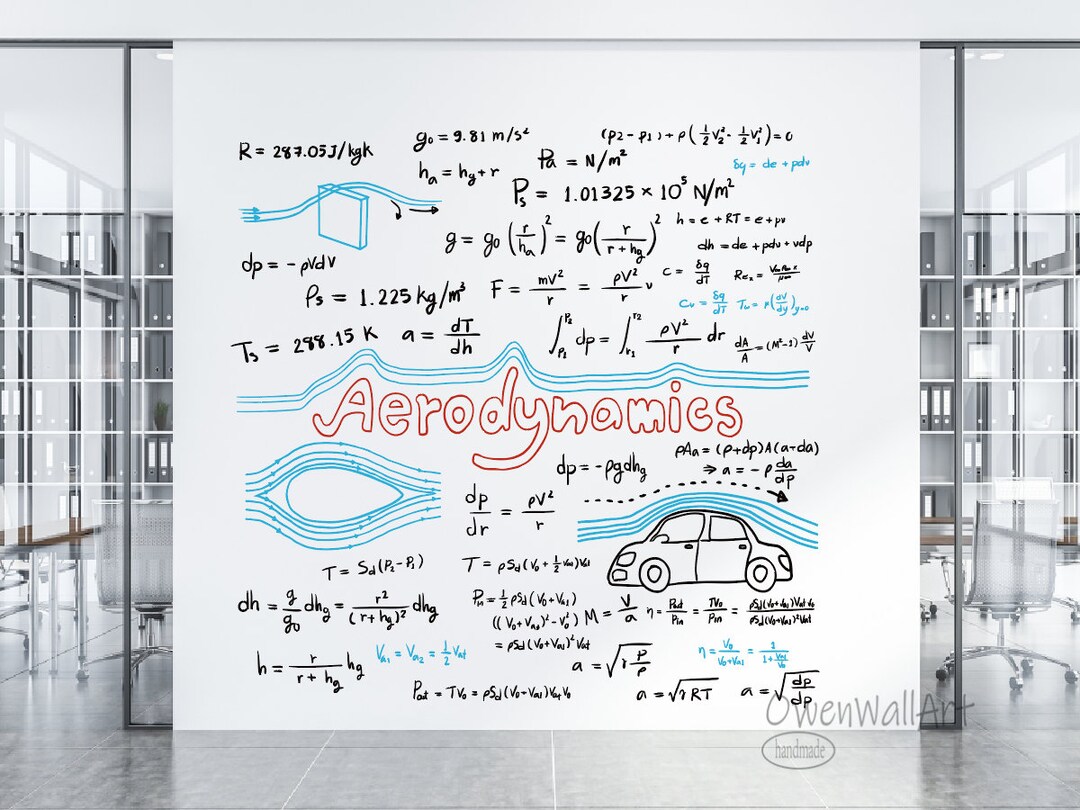 R = 287.05J/kgk
g₀ = 9.81 m/s²
(p2 - p1) + ρ(½V₂² - ½V₁²) = 0
hₐ = hg + r
Pa = N/m²
δq = de + pdv
Ps = 1.01325 × 10⁵ N/m²
g = g₀ (r/hₐ)² = g₀(r/(r + hg))²
h = e + RT = e + pv
dh = de + pdv + vdp
dp = - ρVdV
ρs = 1.225 kg/m³
F = mV²/r = ρV²/r v
c = δq/dT
Cv = δq/dT
Tw = μ(dV/dy)y=0
Ts = 288.15 K
a = dT/dh
∫p₁^p₂ dp = ∫r₁^r₂ ρV²/r dr
dA/A = (M²-1) dV/V
Aerodynamics
ρAa = (ρ+dρ)A(a+da)
⇒ a = - ρ da/dρ
dp = -ρgdhg
dp/dr = ρV²/r
T = Sd(P₂ - P₁)
dh = g/g₀ dhg = r²/(r + hg)² dhg
Pin = ½ρSd(V₀+Va1)
= ρSd(V₀+Va1)²Vat
M = V/a
η = Pout/Pin = TV₀/Pin = ρSd(V₀+Va1)VatV₀/ρSd(V₀+Va1)²Vat
h = r/(r + hg) hg
Va1 = Va2 = ½ Vat
a = √(γ p/ρ)
η = V₀/(V₀+Va1) = 1/(1+Va1/V₀)
Pout = TV₀ = ρSd(V₀+Va1)VatV₀
a = √γRT
a = √(dp/dρ)
OwenWallArt
handmade